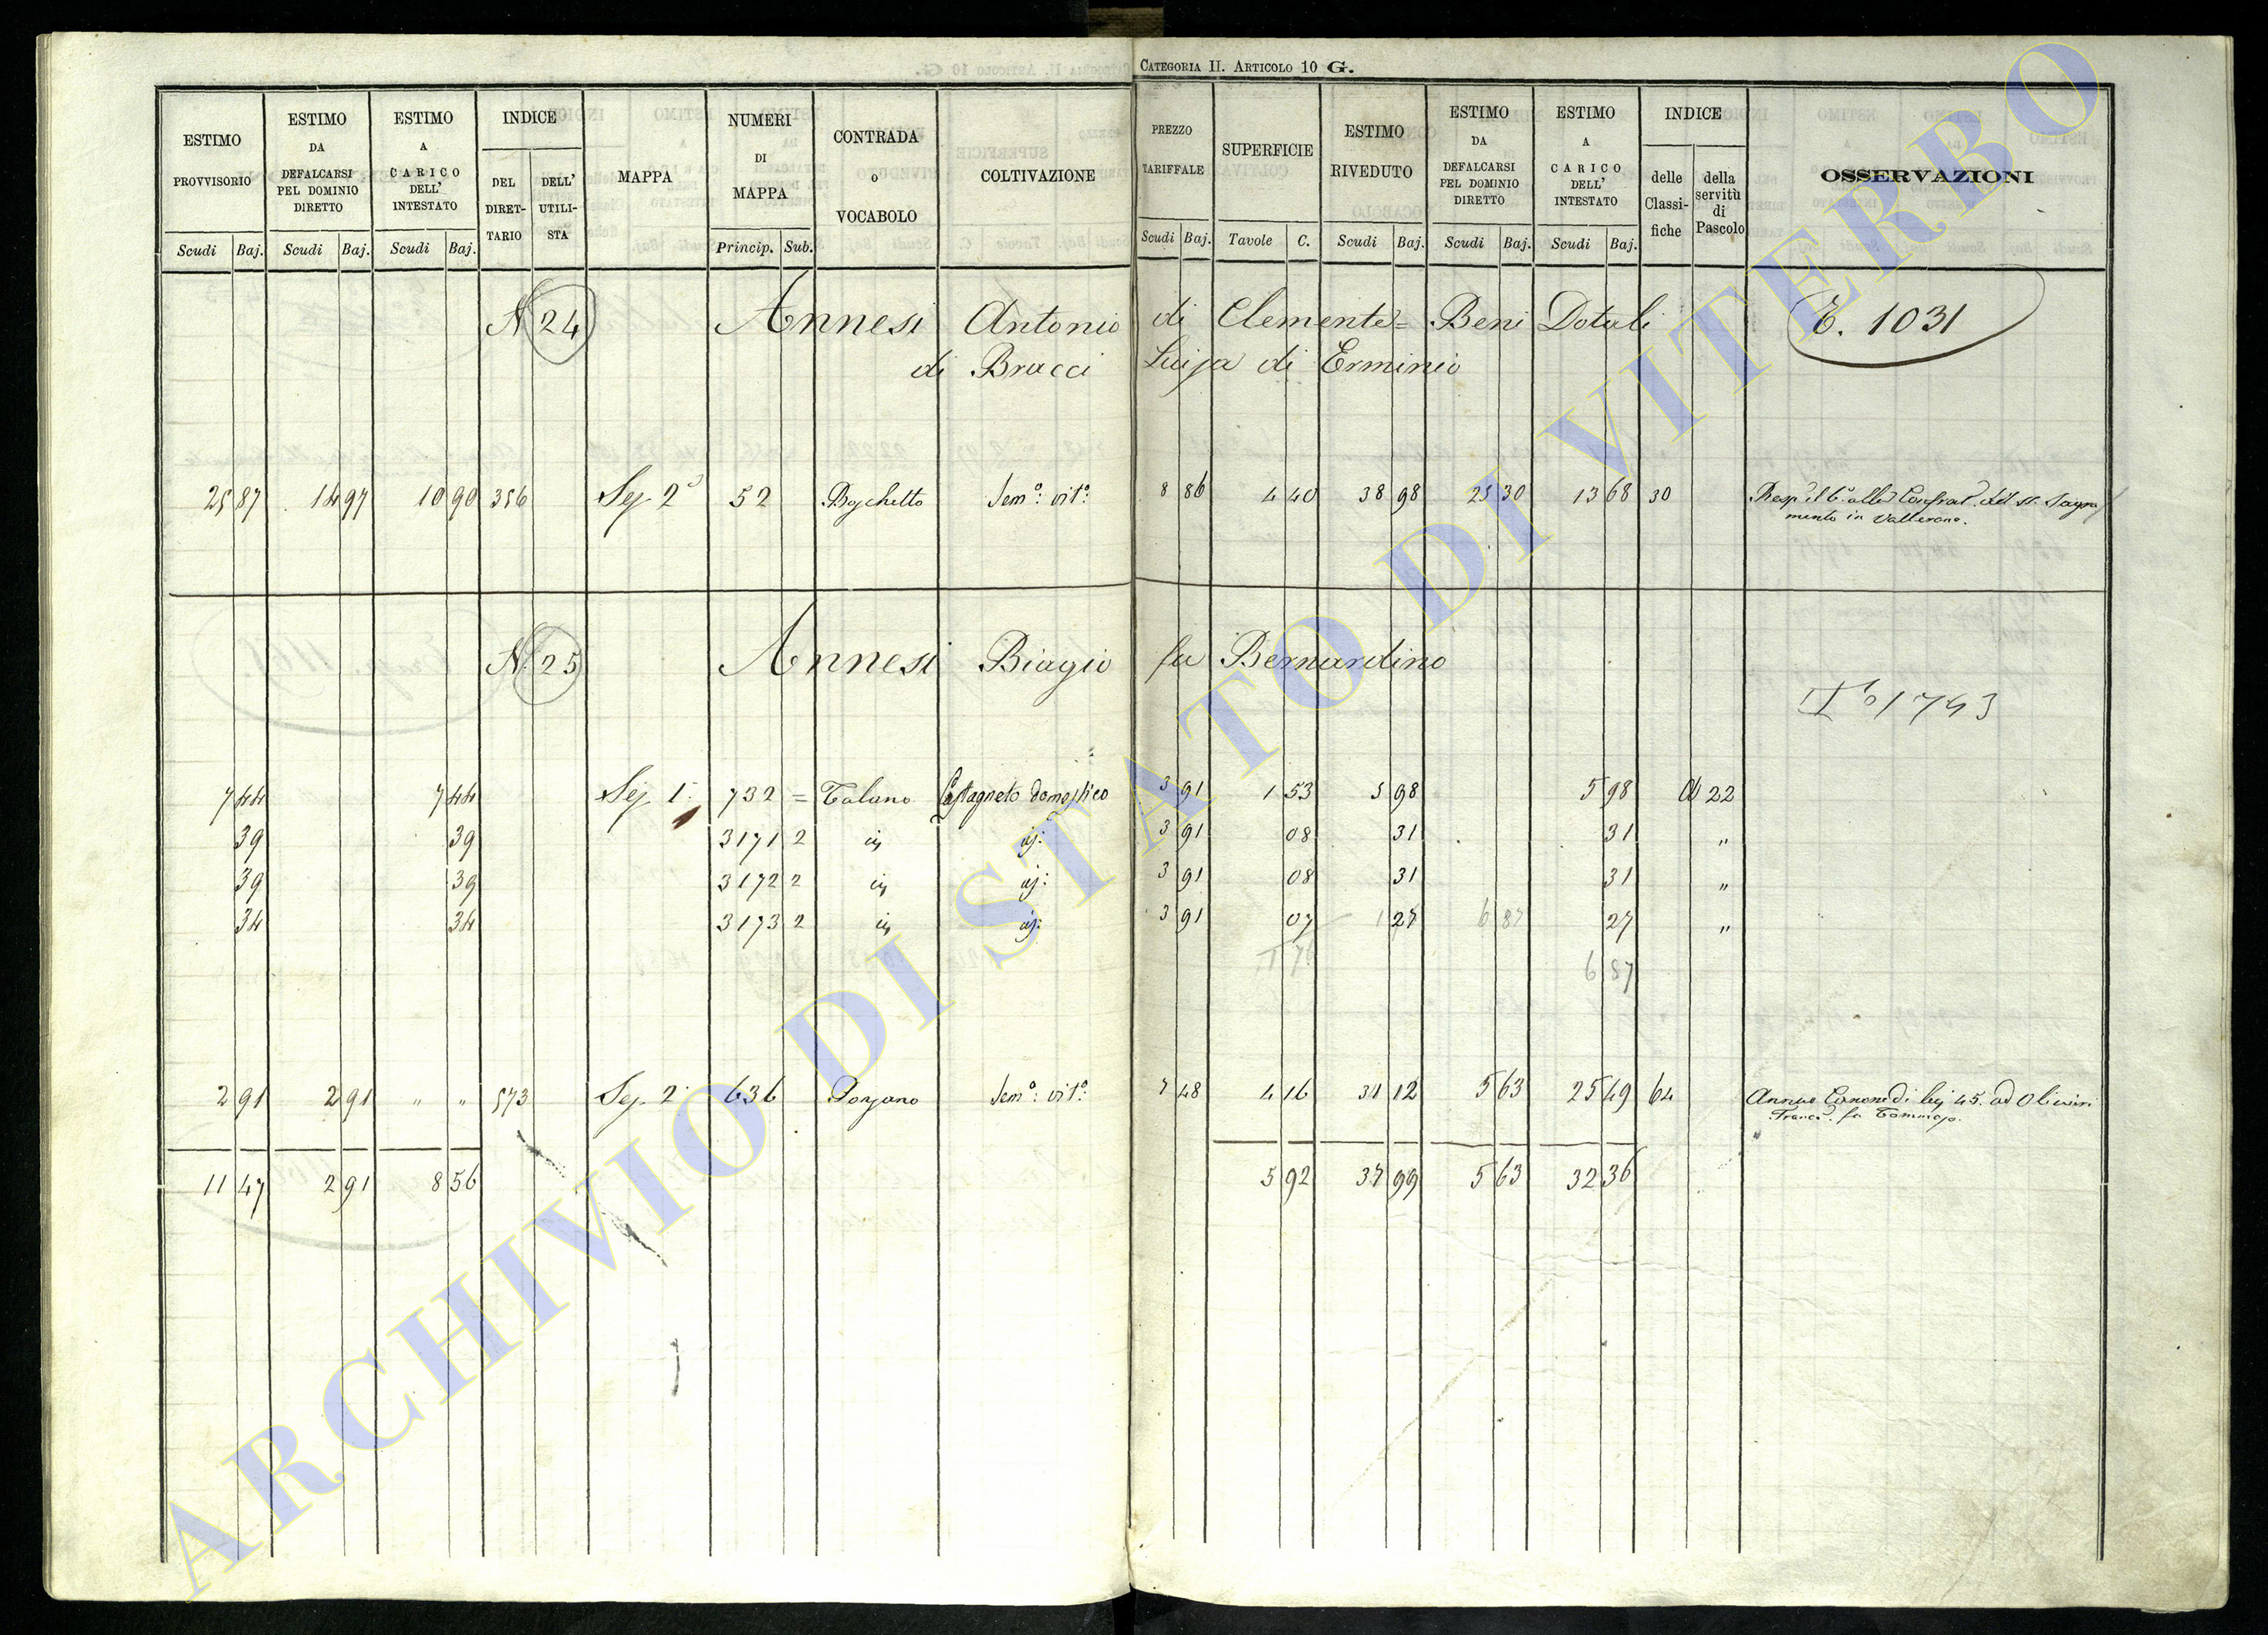 CATEGORIA II. ARTICOLO 10 G.
ESTIMO PROVVISORIO Scudi Baj.
ESTIMO DA DEFALCARSI PEL DOMINIO DIRETTO Scudi Baj.
ESTIMO A CARICO DELL' INTESTATO Scudi Baj.
INDICE DEL DIRETTARIO DELL' UTILISTA
MAPPA
NUMERI DI MAPPA Princip. Sub.
CONTRADA o VOCABOLO
COLTIVAZIONE
PREZZO TARIFFALE Scudi Baj.
SUPERFICIE Tavole C.
ESTIMO RIVEDUTO Scudi Baj.
ESTIMO DA DEFALCARSI PEL DOMINIO DIRETTO Scudi Baj.
ESTIMO A CARICO DELL' INTESTATO Scudi Baj.
INDICE delle Classifiche della servitù di Pascolo
OSSERVAZIONI
N 24 Annesi Antonio di Clemente = Beni Dotali 1031
di Bracci Luisa di Erminio
25 87 14 97 10 90 356 Sez. 2 52 Boschetto Sem.o: vit.o: 8 86 4 40 38 98 25 30 13 68 30 Resp. il 6.o alla Confrat. del SS. Sagra
mento in Vallerano.
N. 25 Annesi Biagio fu Bernardino
1743
7 44 7 44 Sez. 1 732 = Talano Castagneto domestico 3 91 1 53 5 98 5 98 22
39 39 3171 2 3 91 08 31 31 "
39 39 3172 2 3 91 08 31 31 "
34 34 3173 2 3 91 07 27 6 87 27 "
6 87
2 91 2 91 " " 573 Sez. 2 636 Ponzano Sem.o: vit.o: 7 48 4 16 31 12 5 63 25 49 64 Annuo Canone di baj 45. ad Olivieri
Franc.o fu Tommaso.
11 47 2 91 8 56 5 92 37 99 5 63 32 36
ARCHIVIO DI STATO DI VITERBO